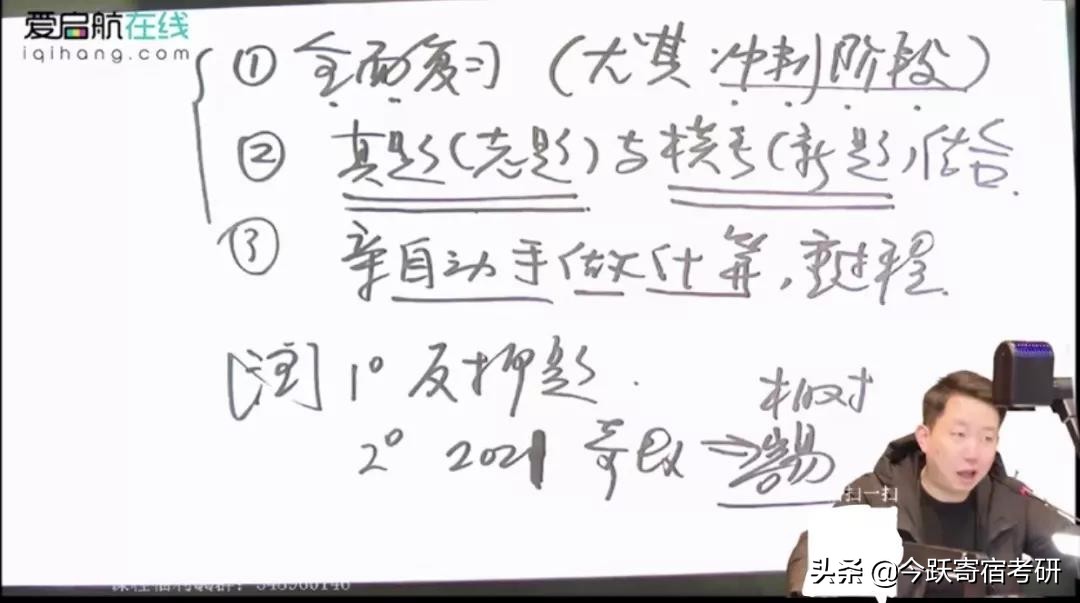 爱启航在线
iqihang.com
① 全面复习（尤其冲刺阶段）
② 真题（老题）与模考（新题）结合.
③ 亲自动手做计算，重过程.
[注] 1° 反押题.
相对
2° 2021 奇数⇒容易
扫一扫
头条 @今跃寄宿考研